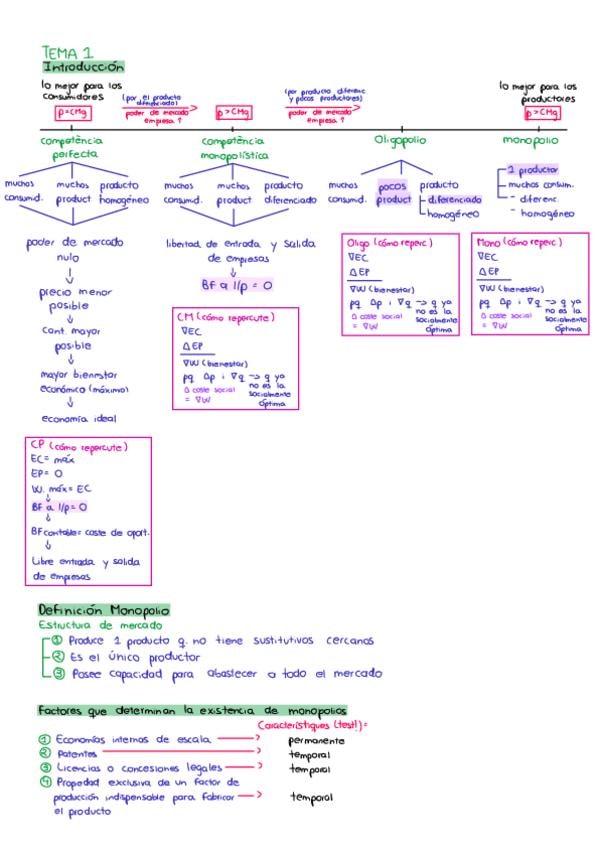 TEMA 1
Introducción
lo mejor para los
consumidores
p=CMg
(por el producto
diferenciado)
poder de mercado
empresa ↑
p>CMg
(por producto diferenc
y pocos productores)
poder de mercado
empresa ↑
lo mejor para los
productores
p>CMg
competència
perfecta
competència
monopolística
Oligopolio
monopolio
muchos
consumid.
muchos
product
producto
homogéneo
muchos
consumid.
muchos
product
producto
diferenciado
muchos
consumid.
pocos
product
producto
diferenciado
homogéneo
1 productor
muchos consum.
- diferenc.
- homogéneo
poder de mercado
nulo
precio menor
posible
Cant. mayor
posible
mayor bienestar
económico (máximo)
economía ideal
libertad de entrada y salida
de empresas
BF a l/p = 0
CM (cómo repercute)
∇EC
ΔEP
∇W (bienestar)
pq Δp i ∇q -> q ya
no es la
socialmente
óptima
Δ coste social
= ∇W
Oligo (cómo reperc)
∇EC
ΔEP
∇W (bienestar)
pq Δp i ∇q -> q ya
no es la
socialmente
óptima
Δ coste social
= ∇W
Mono (cómo reperc)
∇EC
ΔEP
∇W (bienestar)
pq Δp i ∇q -> q ya
no es la
socialmente
óptima
Δ coste social
= ∇W
CP (cómo repercute)
EC= máx
EP= 0
W. máx= EC
BF a l/p=0
BF contable= coste de oport.
Libre entrada y salida
de empresas
Definición Monopolio
Estructura de mercado
① Produce 1 producto q. no tiene sustitutivos cercanos
② Es el único productor
③ Posee capacidad para abastecer a todo el mercado
Factores que determinan la existencia de monopolios
Característiques (test!)=
① Economías internas de escala -> permanente
② Patentes -> temporal
③ Licencias o concesiones legales -> temporal
④ Propiedad exclusiva de un factor de
producción indispensable para fabricar -> temporal
el producto